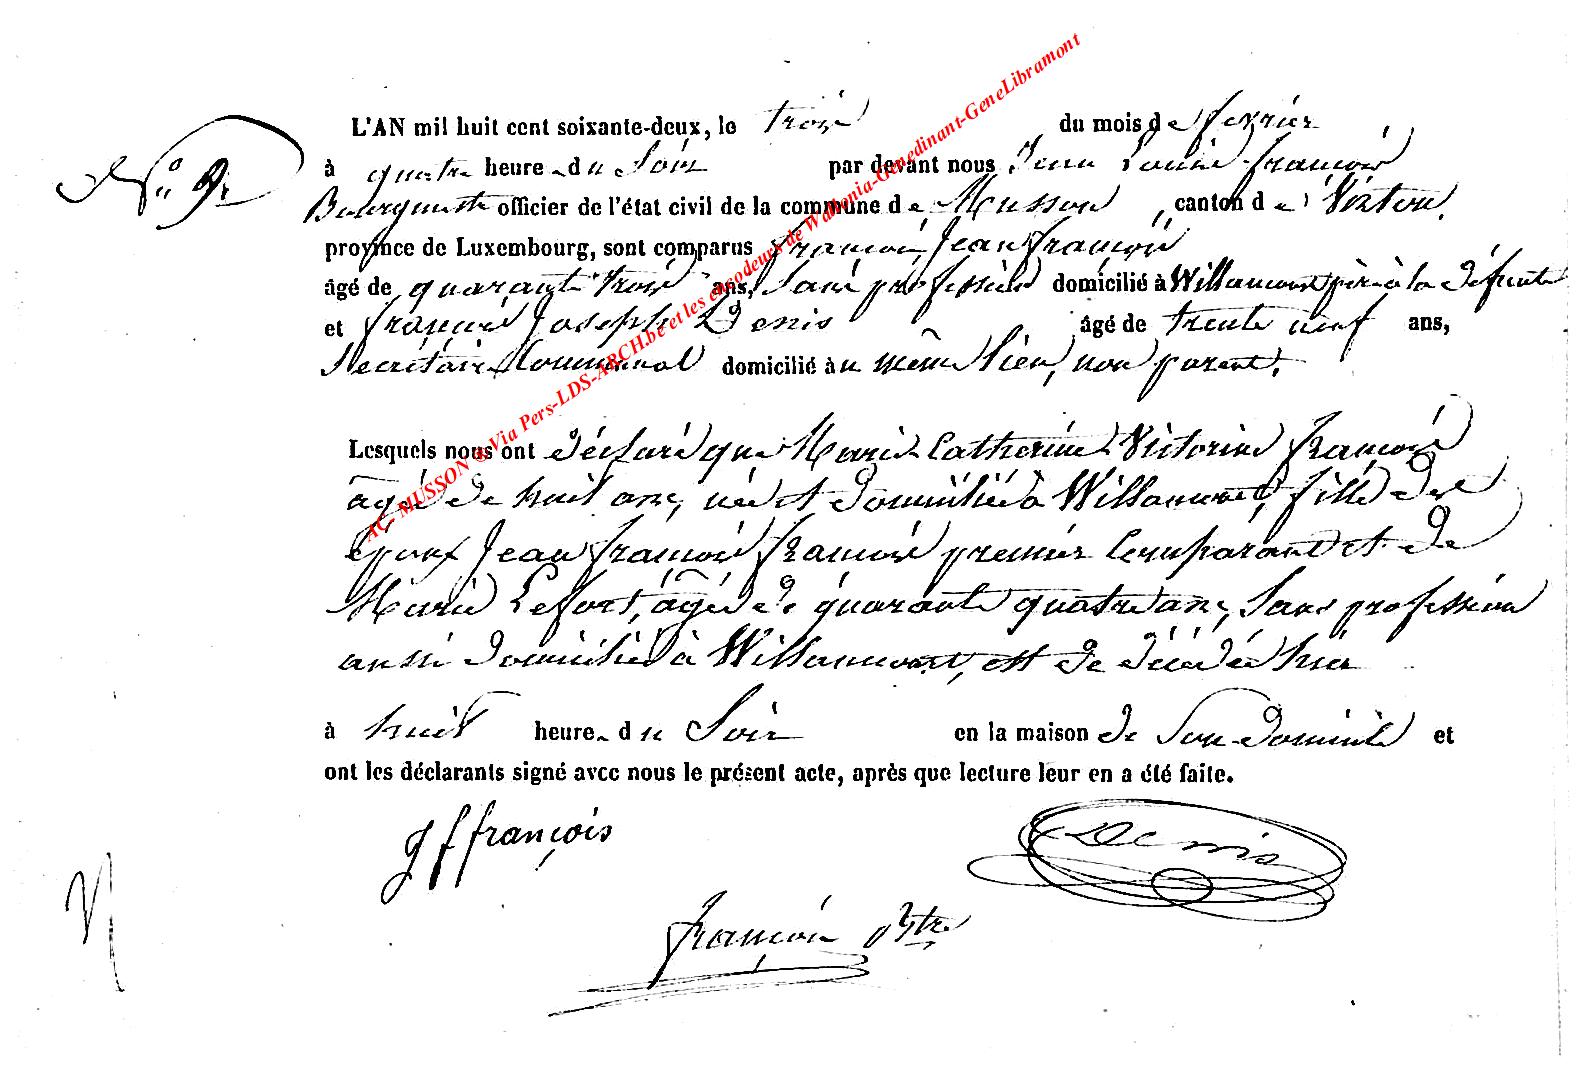 N° 9.
L'AN mil huit cent soixante-deux, le trois du mois de février
à quatre heures du Soir par devant nous Jean Louis François
Bourgmestre officier de l'état civil de la commune de Musson, canton de Virton,
province de Luxembourg, sont comparus François Jean François
âgé de quarante trois ans, Sans profession domicilié à Willancourt père à la défunte
et François Joseph Denis âgé de trente neuf ans,
Secrétaire Communal domicilié au même lieu, non parent.
Lesquels nous ont déclaré que Marie Catherine Victorine François
âgée de huit ans, née et domiciliée à Willancourt, fille des
époux Jean François François premier Comparant et de
Marie Lefort, âgée de quarante quatre ans, Sans profession
aussi domiciliée à Willancourt, est décédée hier
à huit heures du Soir en la maison de Son domicile et
ont les déclarants signé avec nous le présent acte, après que lecture leur en a été faite.
J f françois Denis
françois Bstre
AC. MUSSON ® Via Pers-LDS-ARCH.be et les encodeurs de Wallonia-Genedinant-GeneLibramont